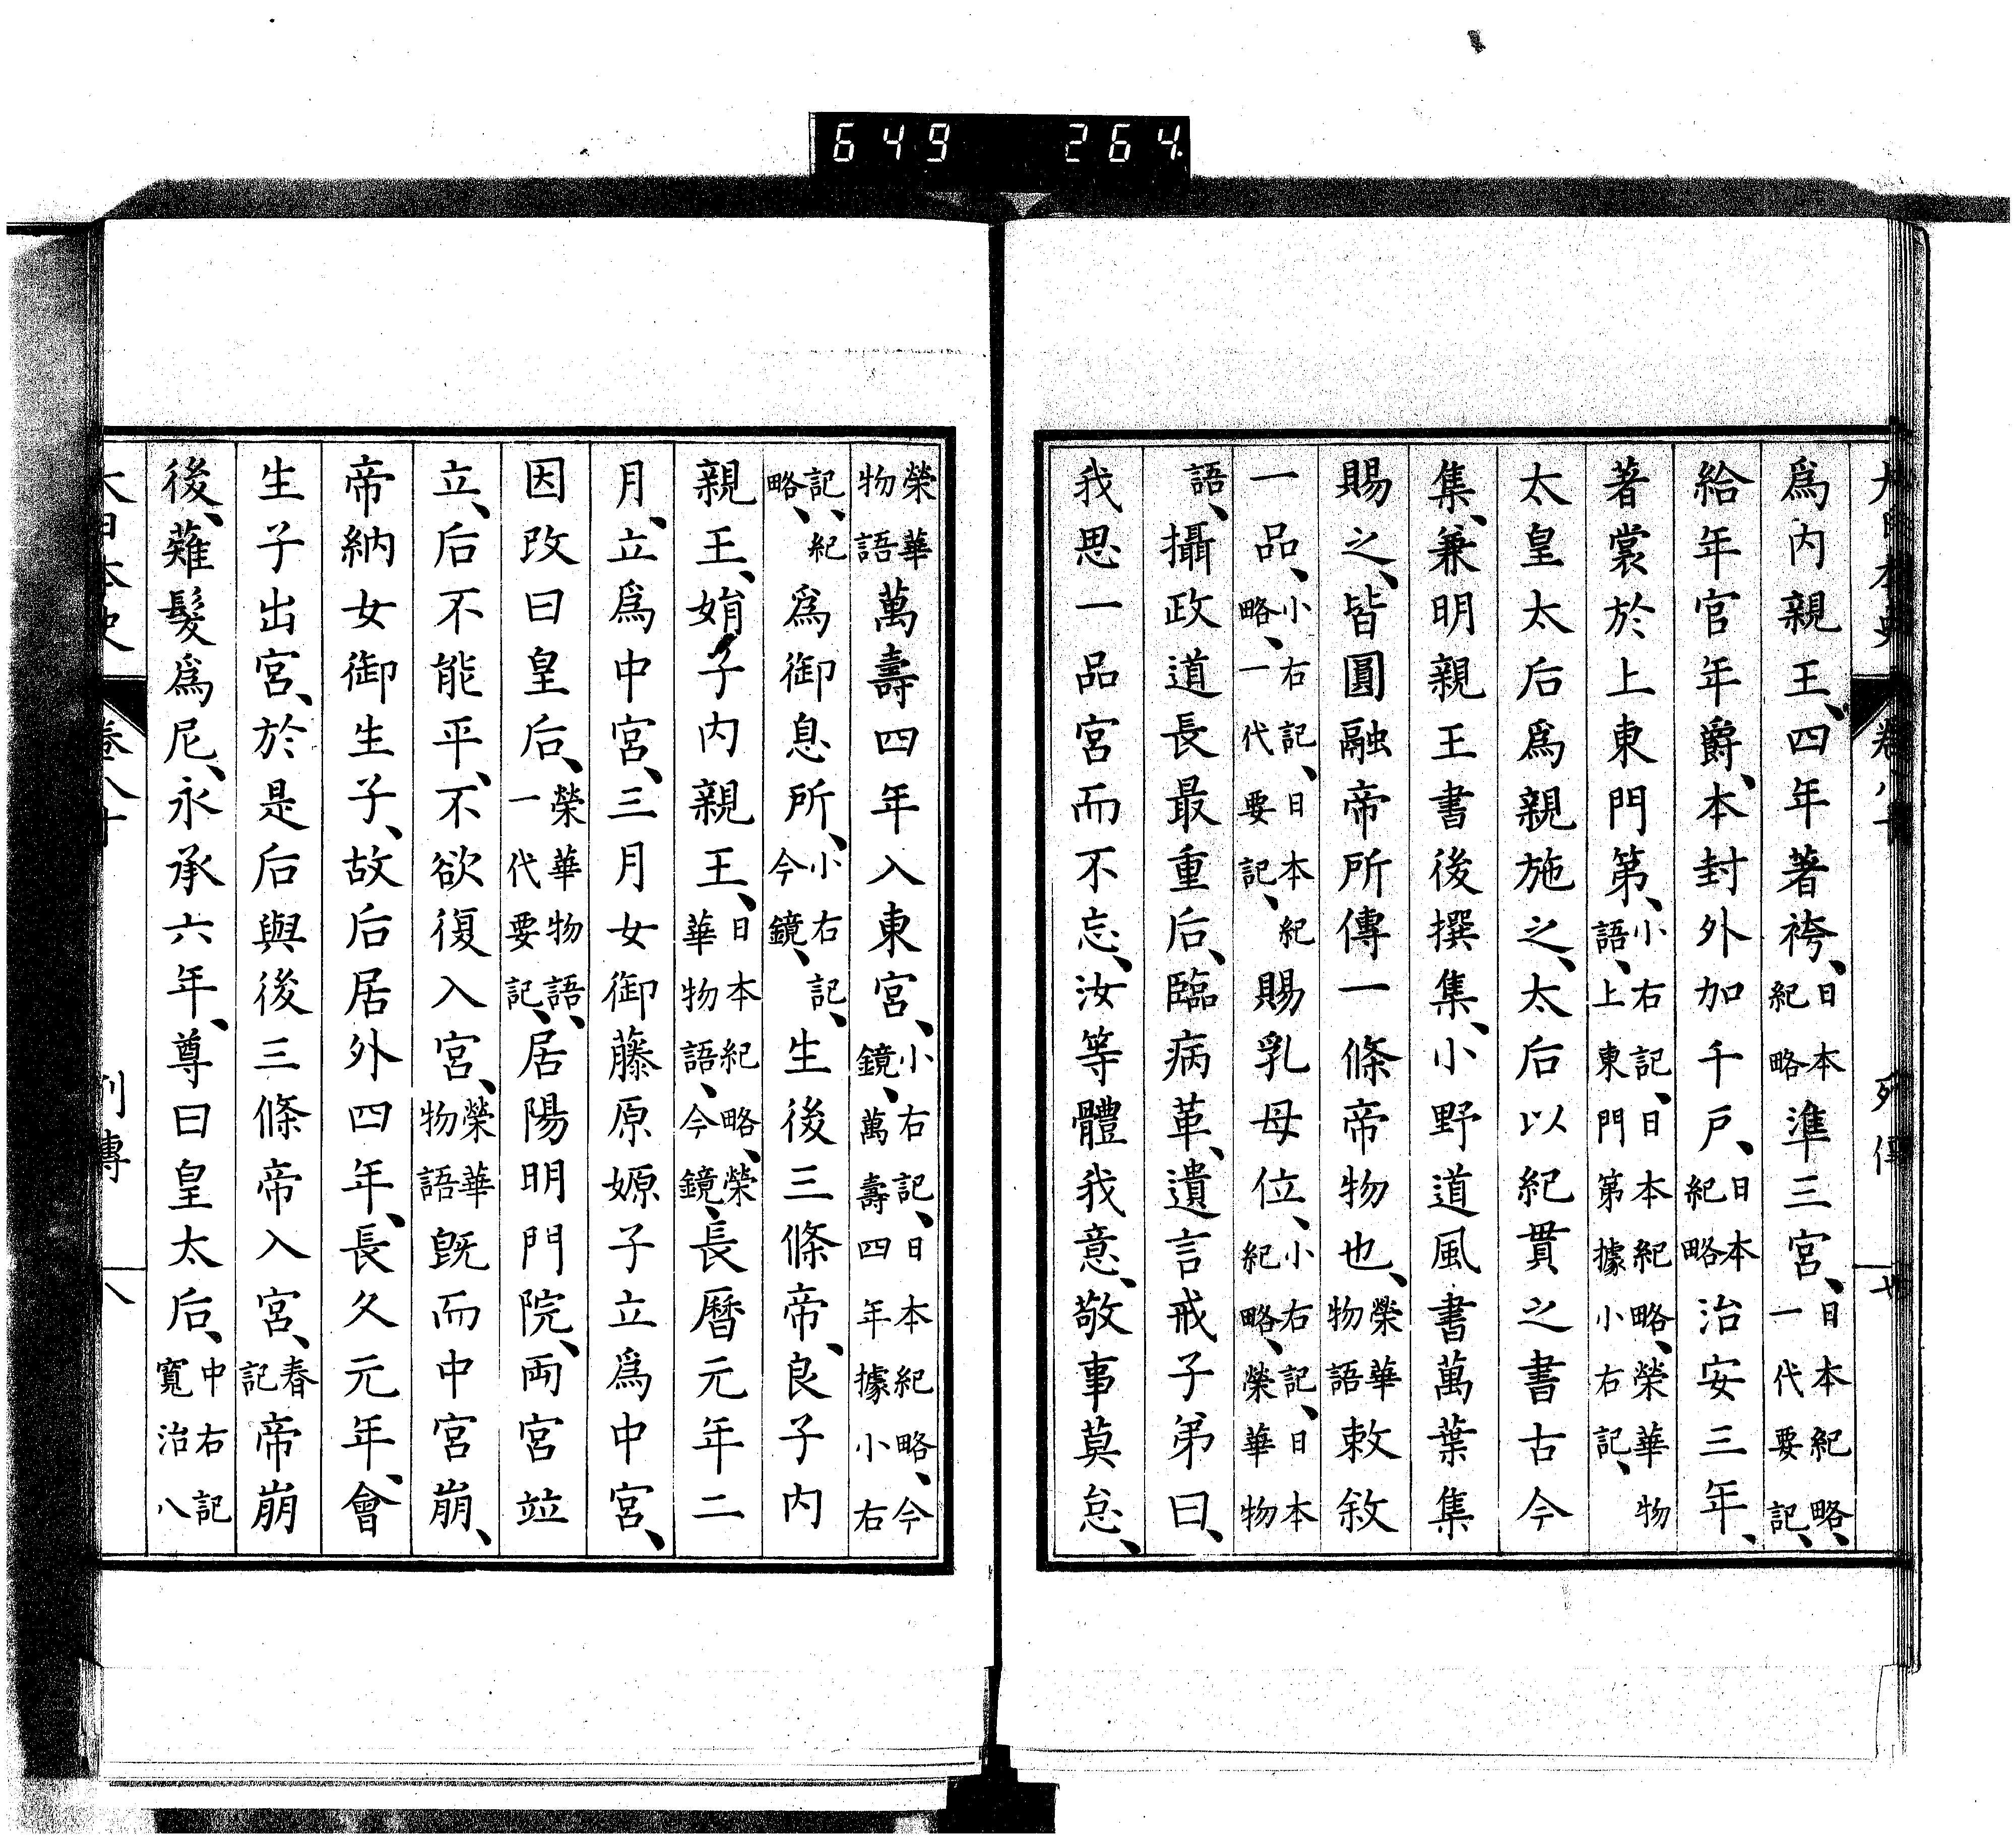 649 264.
大日本史 卷八十 列傳 七
爲内親王、四年著袴、日本紀略準三宮、日本紀略、一代要記、
給年官年爵、本封外加千戸、日本紀略治安三年、
著裳於上東門第、小右記、日本紀略、榮華物語、上東門第據小右記、
太皇太后爲親施之、太后以紀貫之書古今
集、兼明親王書後撰集、小野道風書萬葉集
賜之、皆圓融帝所傳一條帝物也、榮華物語敕敘
一品、小右記、日本紀略、一代要記、賜乳母位、小右記、日本紀略、榮華物
語、攝政道長最重后、臨病革、遺言戒子弟曰、
我思一品宮而不忘、汝等體我意、敬事莫怠、
榮華物語萬壽四年入東宮、小右記、日本紀略、今鏡、萬壽四年據小右
記、紀略、爲御息所、小右記、今鏡、生後三條帝、良子内
親王、娟子内親王、日本紀略、榮華物語、今鏡、長曆元年二
月、立爲中宮、三月女御藤原嫄子立爲中宮、
因改曰皇后、榮華物語、一代要記、居陽明門院、両宮竝
立、后不能平、不欲復入宮、榮華物語既而中宮崩、
帝納女御生子、故后居外四年、長久元年、會
生子出宮、於是后與後三條帝入宮、春記帝崩
後、薙髪爲尼、永承六年、尊曰皇太后、中右記寬治八
大日本史 卷八十 列傳 八